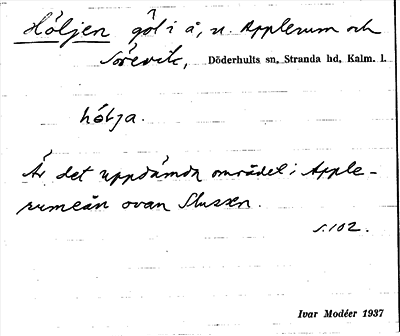 Höljen göl i å, n. Applerum och
Sörevik, Döderhults sn, Stranda hd, Kalm. l.
hölja.
Är det uppdämda området i Apple-
rumeån ovan Slussen.
s. 102.
Ivar Modéer 1937